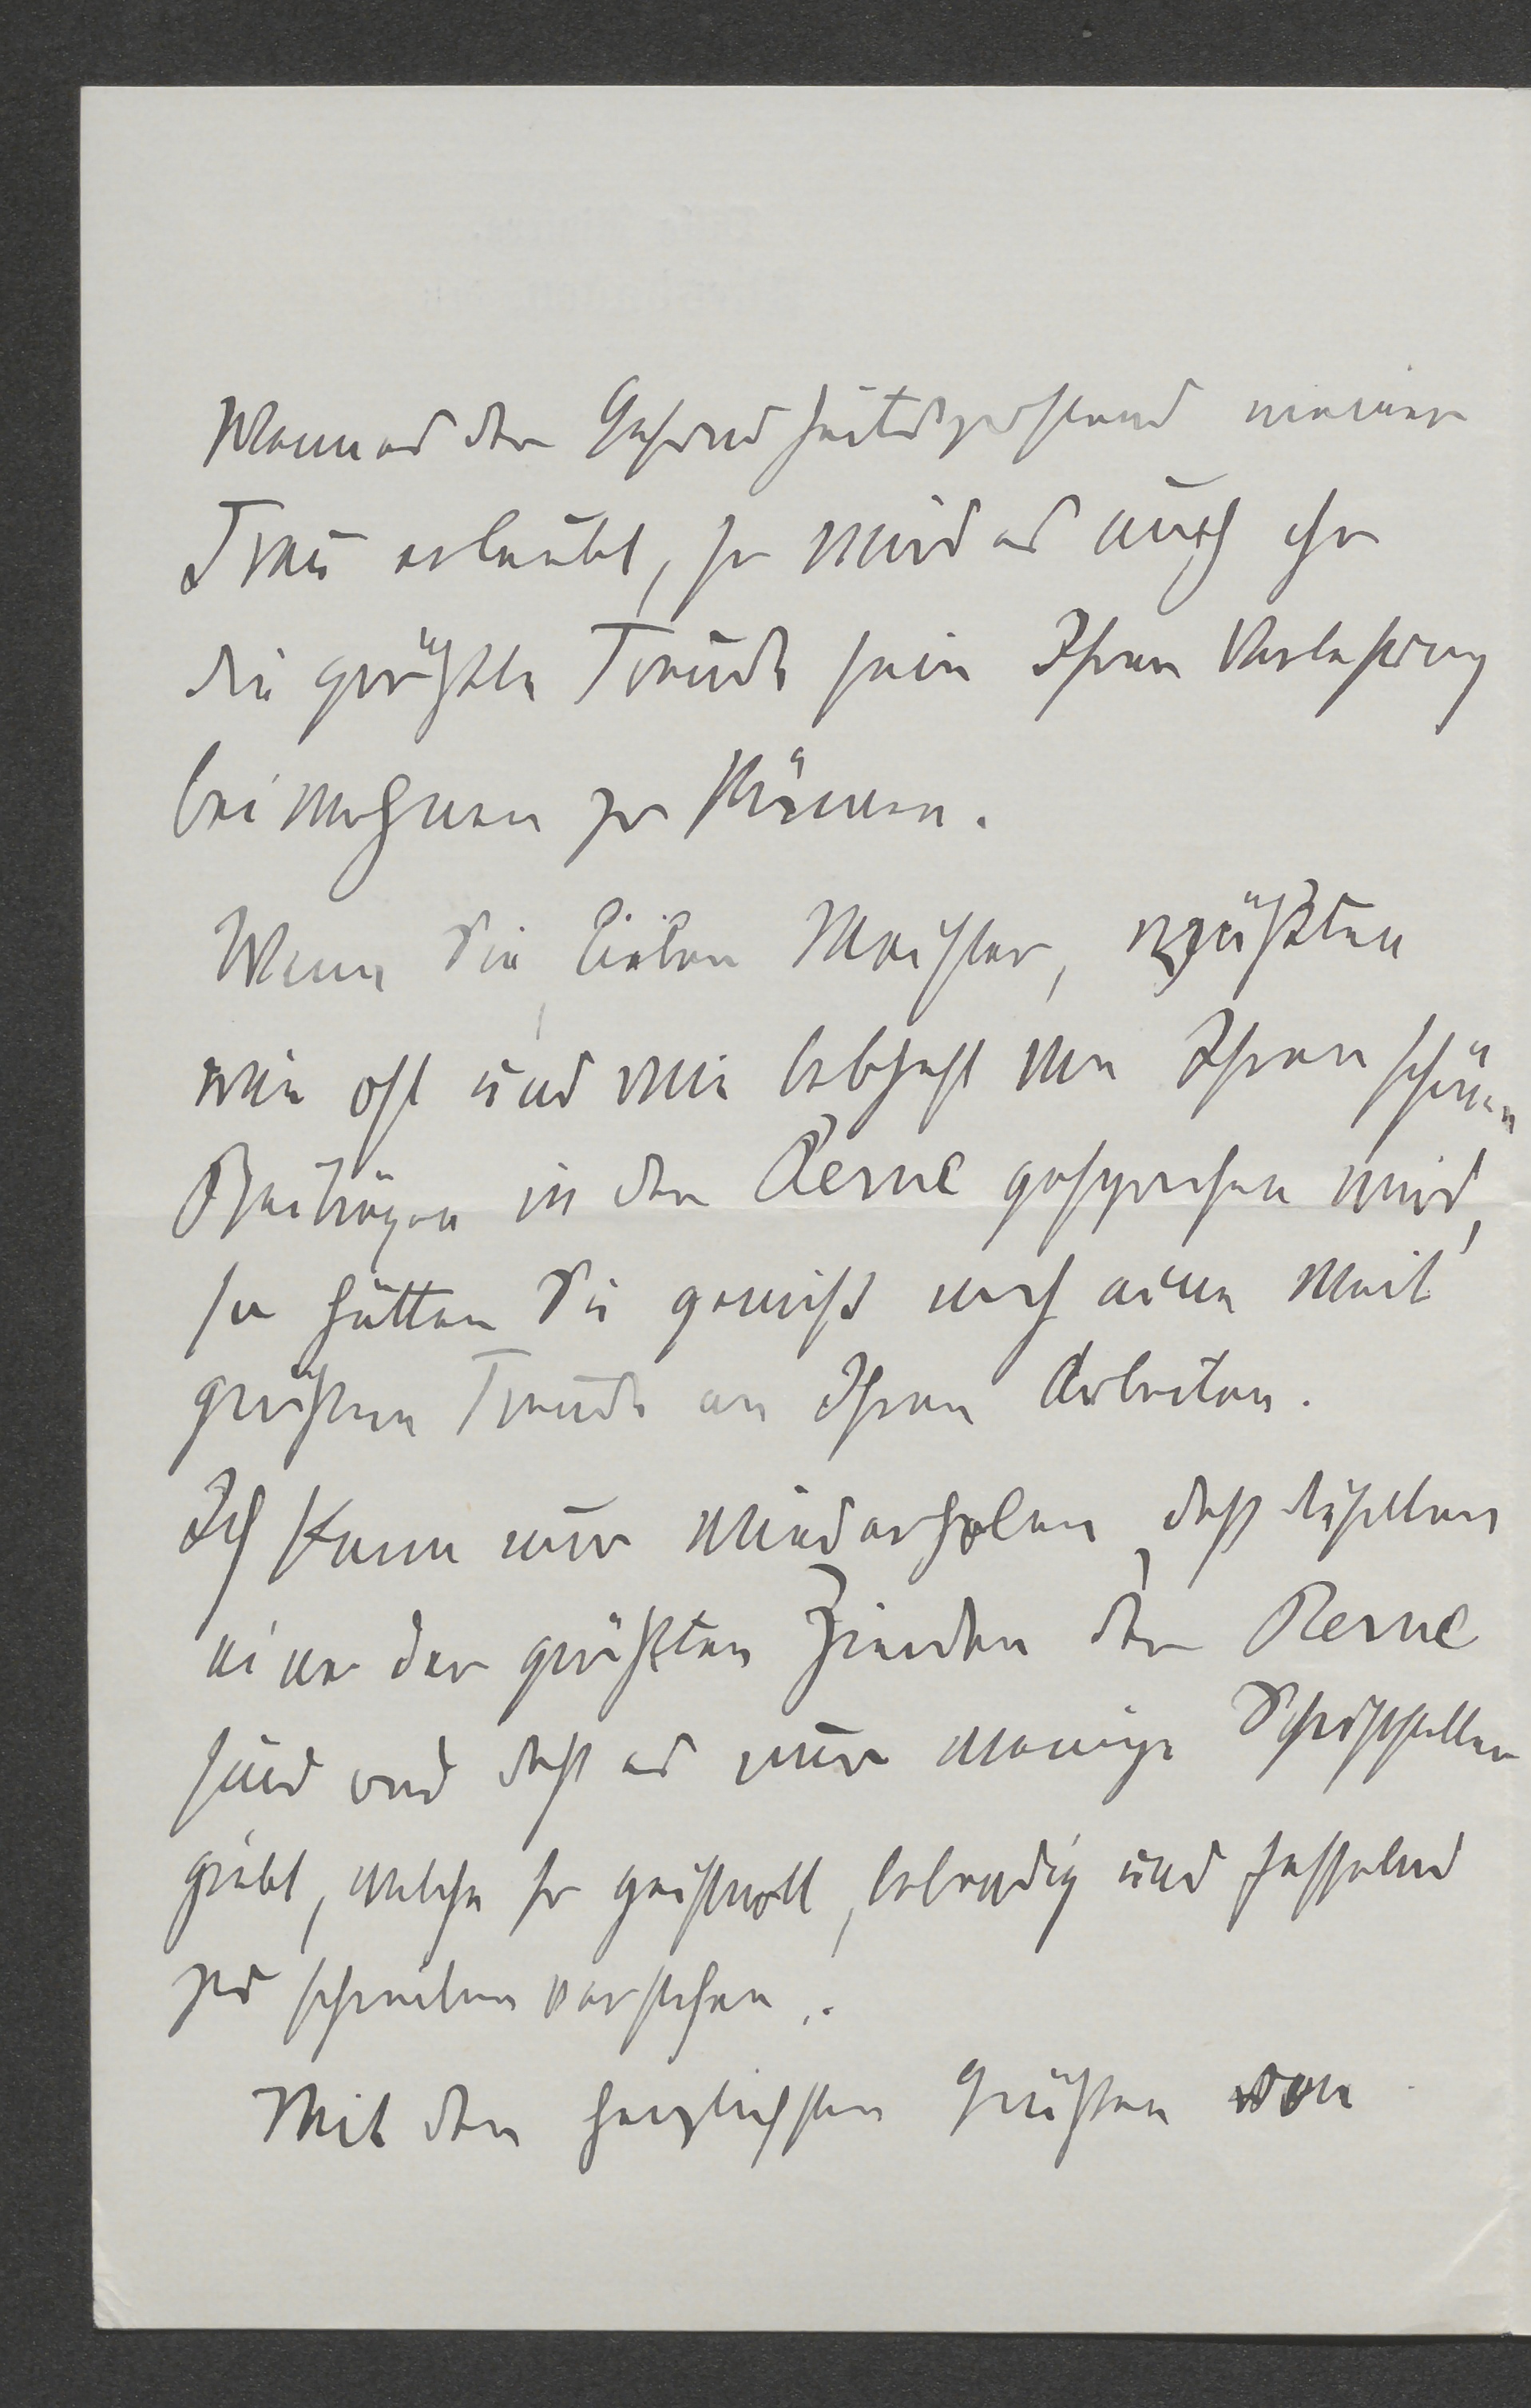 Wenn es der Gesundheitszustand meiner
Frau erlaubt, so wird es auch ihr
die größte Freude sein Ihrer Vorlesung
beiwohnen zu können.
Wenn Sie, lieber Meister, wüßten
wie oft und wie lebhaft von Ihren schönen
Beiträgen in der Revue gesprochen wird,
so hätten Sie gewiß noch eine weit
größere Freude an Ihren Arbeiten.
Ich kann nur wiederholen, daß dieselben
eine der größten Zierden der Revue
sind und daß es nur wenige Schriftsteller
giebt, welche so geistvoll, lebendig und fesselnd
zu schreiben verstehen.
Mit den herzlichsten Grüßen von